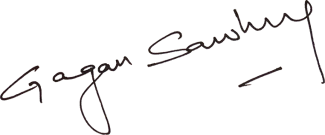 Gagan Sawhney